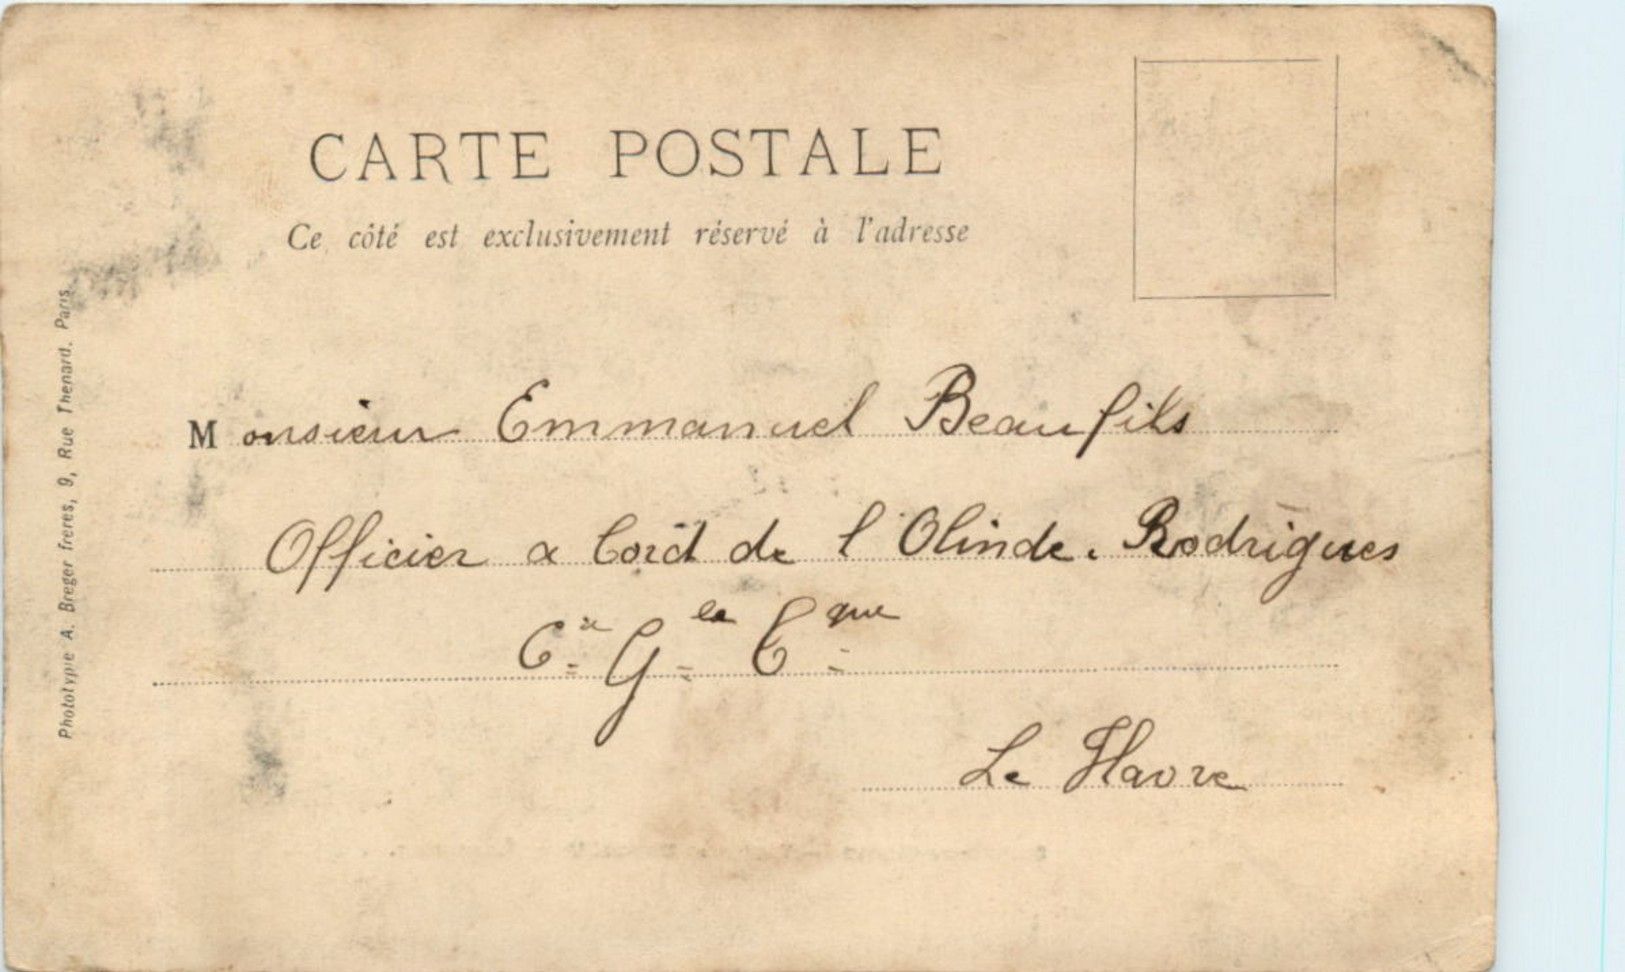 CARTE POSTALE
Ce côté est exclusivement réservé à l'adresse
Monsieur Emmanuel Beaufils
Officier a bord de l'Olinde. Rodrigues
Cie Gle Tque
Le Havre
Phototypie A. Breger freres, 9, Rue Thenard. Paris.